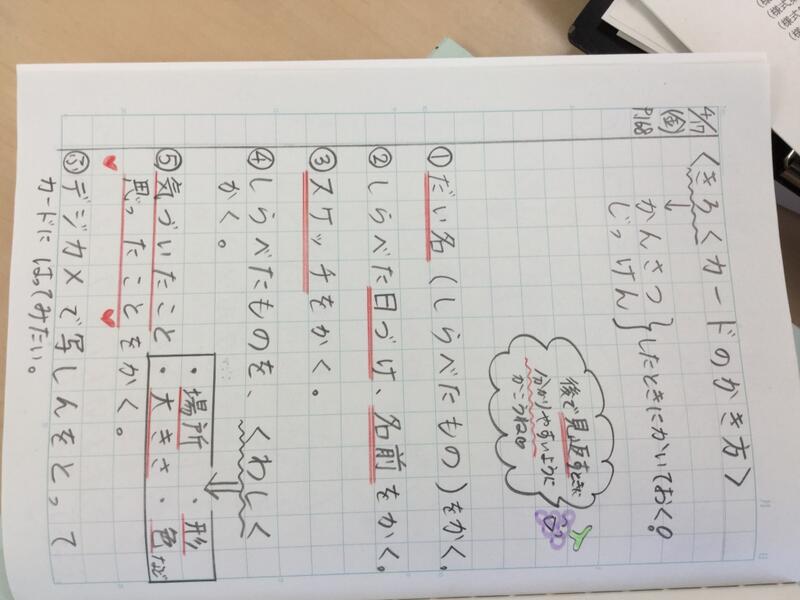 4/17
(金)
P168
〈きろくカードのかき方〉
かんさつ
じっけん
}したときにかいておく。
後で見返すときに
分かりやすいように
かこうね
①だい名(しらべたもの)をかく。
②しらべた日づけ、名前をかく。
③スケッチをかく。
④しらべたものを、くわしく
かく。
・場所 ・形
・大きさ・色など
⑤気づいたこと
思ったことをかく。
③デジカメで写しんをとって
カードにはってみたい。
(様式
(様式
(様式